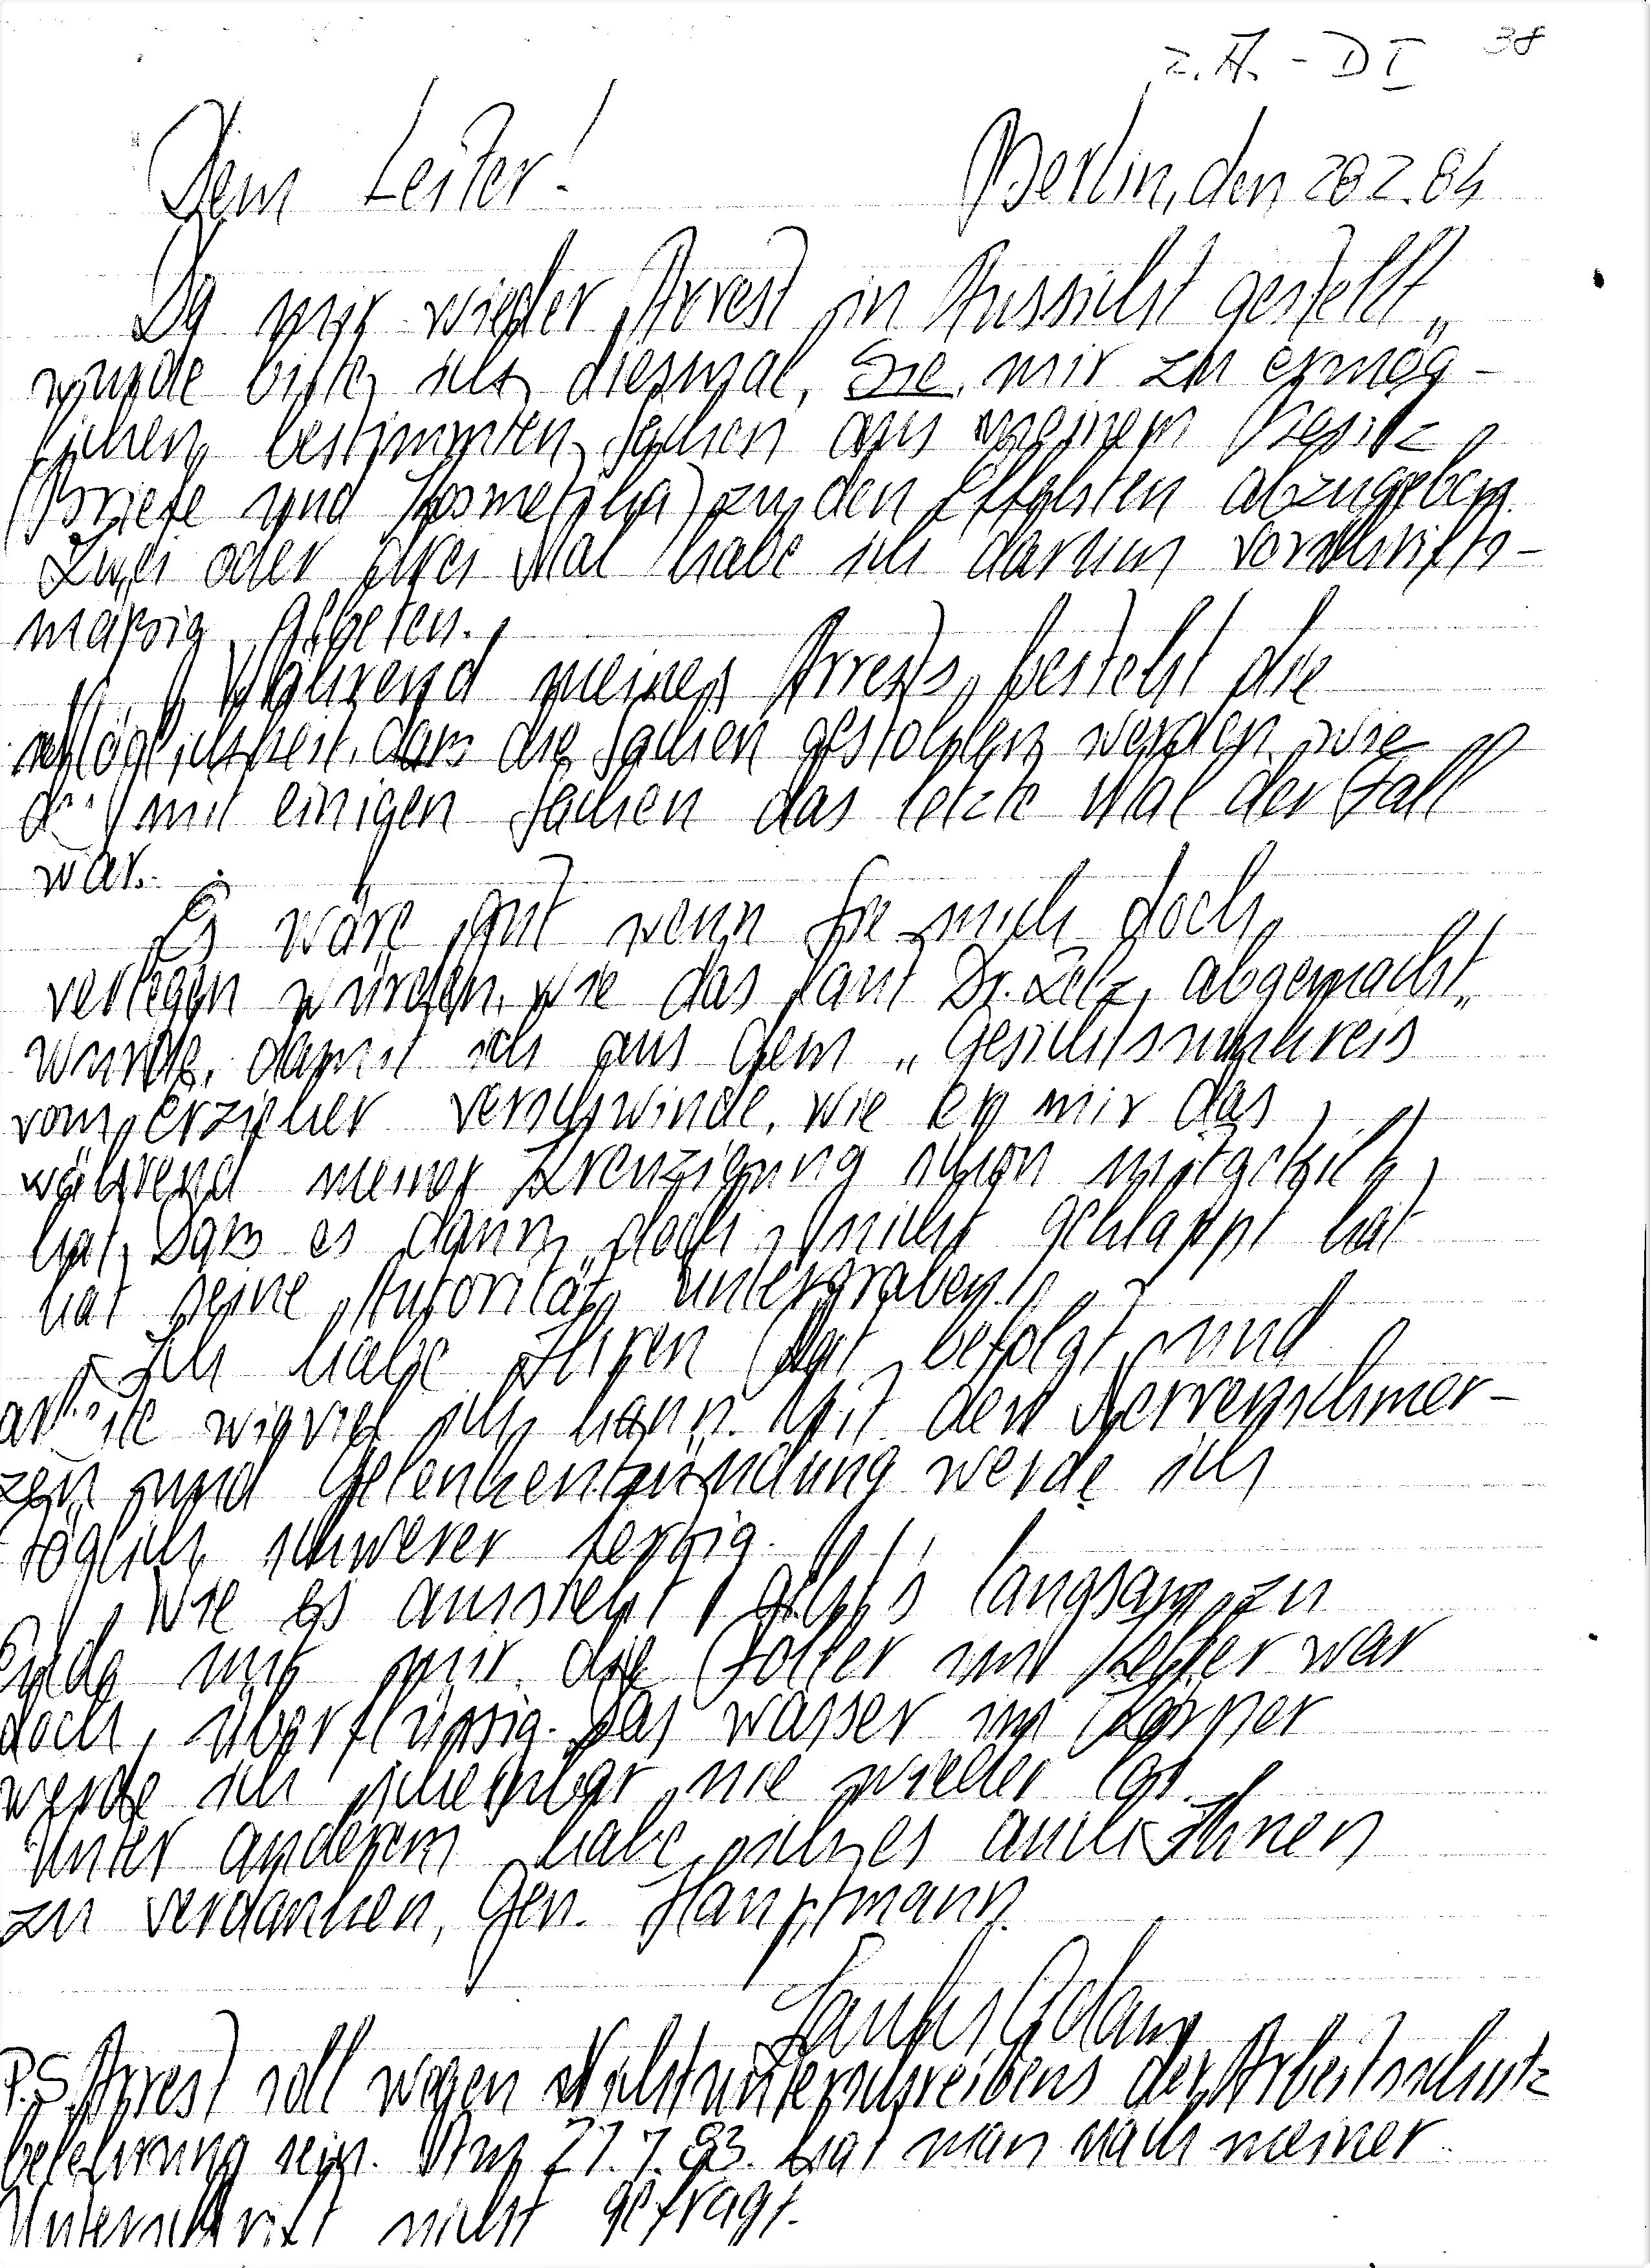 z. A. - D I 38
Dem Leiter! Berlin, den 28 2. 84
Da mir wieder Arrest in Aussicht gestellt
wurde bitte ich diesmal, Sie, mir zu ermög-
lichen bestimmten Sachen aus meinem Besitz
(Briefe und Kosmetika) zu den Effekten abzugeben.
Zwei oder drei Mal habe ich darum vorschrifts-
mäßig gebeten.
Während meines Arrests, besteht die
Möglichkeit, dass die Sachen gestohlen werden wie
das mit einigen Sachen das letzte Mal der Fall
war.
Es wäre gut wenn Sie mich doch
verlegen würden, wie das laut Dr. Zelz, abgemacht
wurde, damit ich aus dem „Gesichtsumkreis
vom Erzieher verschwinde, wie er mir das
während meiner Kreuzigung schon mitgeteilt
hat, Dass es dann doch nicht geklappt hat
hat seine Autorität untergraben.
Ich habe Ihren Rat befolgt und
arbeite wieviel ich kann. Mit den Nervenschmer-
zen und Gelenkentzündung werde ich
täglich schwerer fertig.
Wie es aussieht, geht's langsam zu
Ende mit mir, die Folter im Keller war
doch, überflüssig. Das Wasser im Körper
werde ich scheinbar nie wieder los.
Unter anderem habe ich es auch Ihnen
zu verdanken, Gen. Hauptmann.
P.S. Arrest soll wegen Nichtunterschreibens der Arbeitsschutz
belehrung sein. Am 21.7.83. hat man nach meiner
Unterschrift nicht gefragt.